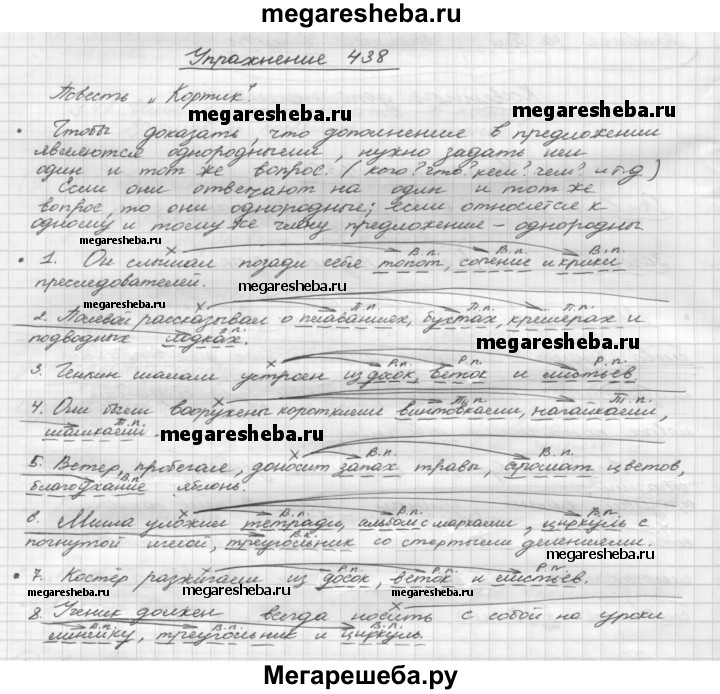 megaresheba.ru
megaresheba.ru
Упражнение 438
Повесть „Кортик".
megaresheba.ru
megaresheba.ru
• Чтобы доказать, что дополнение в предложении
являются однородными, нужно задать ней
один и тот же вопрос. (кого? что? кем? чем? и т.д)
Если они отвечают на один и тот же
вопрос, то они однородные; если относятся к
одному и тому же члену предложение – однородны
megaresheba.ru
megaresheba.ru
× В.п. В.п. В.п.
• 1. Он слышал позади себе топот, сопение и крики
преследователей.
megaresheba.ru
× П.п. П.п. П.п.
2. Полевой рассказывал о плаваниях, бухтах, крейсерах и
П.п.
подводных лодках.
megaresheba.ru
× Р.п. Р.п. Р.п.
3. Генкин шалаш устроен из досок, веток и листьев
× Т.п. Т.п.
4. Они были вооружены короткими винтовками, нагайками,
Т.п.
шашками.
megaresheba.ru
megaresheba.ru
× В.п. В.п.
5. Ветер, пробегая, доносит запах травы, аромат цветов,
В.п.
благоухание яблонь.
× В.п. В.п. В.п.
6. Миша уложил тетради, альбом с марками, циркуль с
В.п.
погнутой иглой, треугольник со стертыми делениями.
megaresheba.ru
× Р.п. Р.п. Р.п.
• 7. Костёр разжигали из досок, веток и листьев.
megaresheba.ru
megaresheba.ru
×
8. Ученик должен всегда носить с собой на уроки
В.п. В.п. В.п.
линейку, треугольник и циркуль.
Мегарешеба.ру